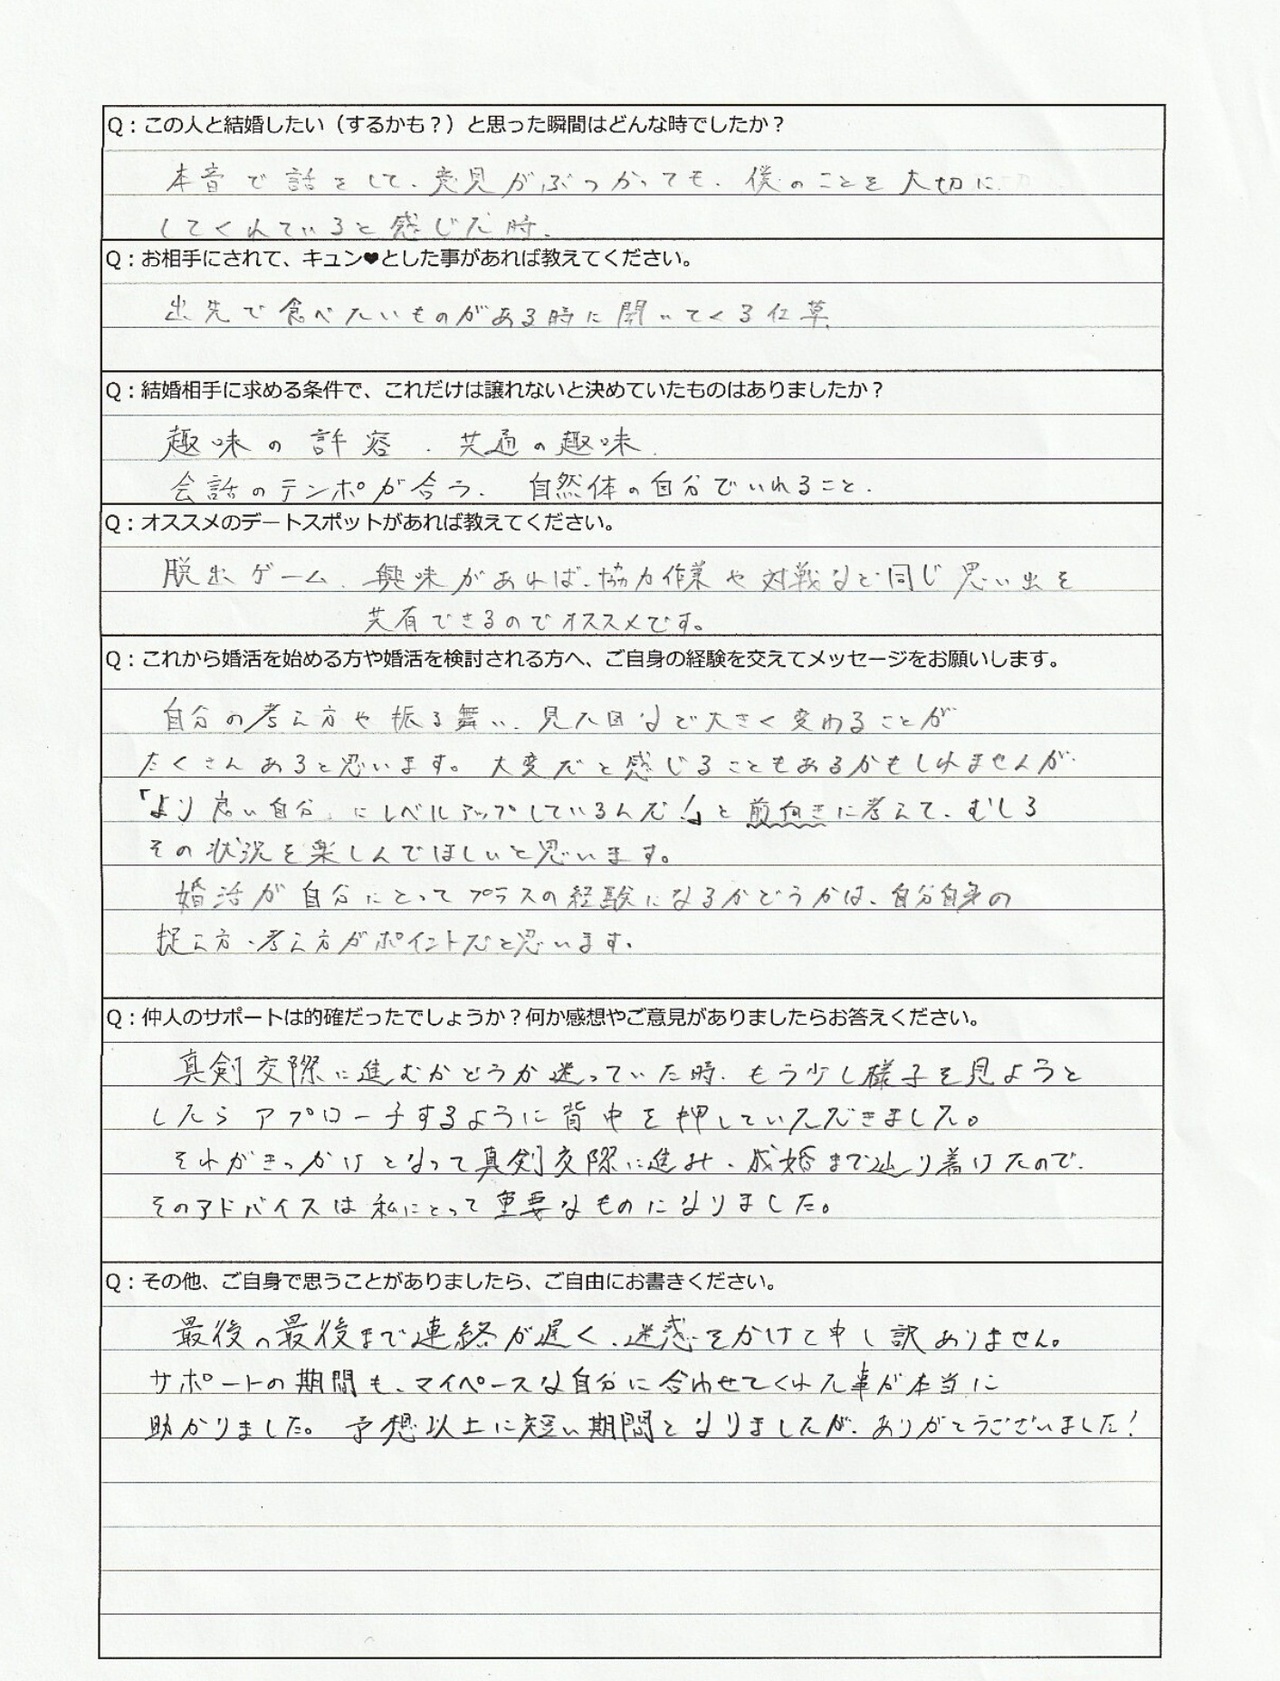 Q：この人と結婚したい（するかも？）と思った瞬間はどんな時でしたか？
本音で話をして、意見がぶつかっても、僕のことを大切に
してくれていると感じた時。
Q：お相手にされて、キュン♥とした事があれば教えてください。
出先で食べたいものがある時に聞いてくる仕草
Q：結婚相手に求める条件で、これだけは譲れないと決めていたものはありましたか？
趣味の許容、共通の趣味、
会話のテンポが合う、自然体の自分でいれること。
Q：オススメのデートスポットがあれば教えてください。
脱出ゲーム、興味があれば、協力作業や対戦など同じ思い出を
共有できるのでオススメです。
Q：これから婚活を始める方や婚活を検討される方へ、ご自身の経験を交えてメッセージをお願いします。
自分の考え方や振る舞い、見た目などで大きく変わることが
たくさんあると思います。大変だと感じることもあるかもしれませんが、
「より良い自分」にレベルアップしているんだ！」と前向きに考えて、むしろ
その状況を楽しんでほしいと思います。
婚活が自分にとってプラスの経験になるかどうかは、自分自身の
捉え方・考え方がポイントだと思います。
Q：仲人のサポートは的確だったでしょうか？何か感想やご意見がありましたらお答えください。
真剣交際に進むかどうか迷っていた時、もう少し様子を見ようと
したらアプローチするように背中を押していただきました。
それがきっかけとなって真剣交際に進み、成婚まで辿り着けたので、
そのアドバイスは私にとって重要なものになりました。
Q：その他、ご自身で思うことがありましたら、ご自由にお書きください。
最後の最後まで連絡が遅く、迷惑をかけて申し訳ありません。
サポートの期間も、マイペースな自分に合わせてくれた事が本当に
助かりました。予想以上に短い期間となりましたが、ありがとうございました！